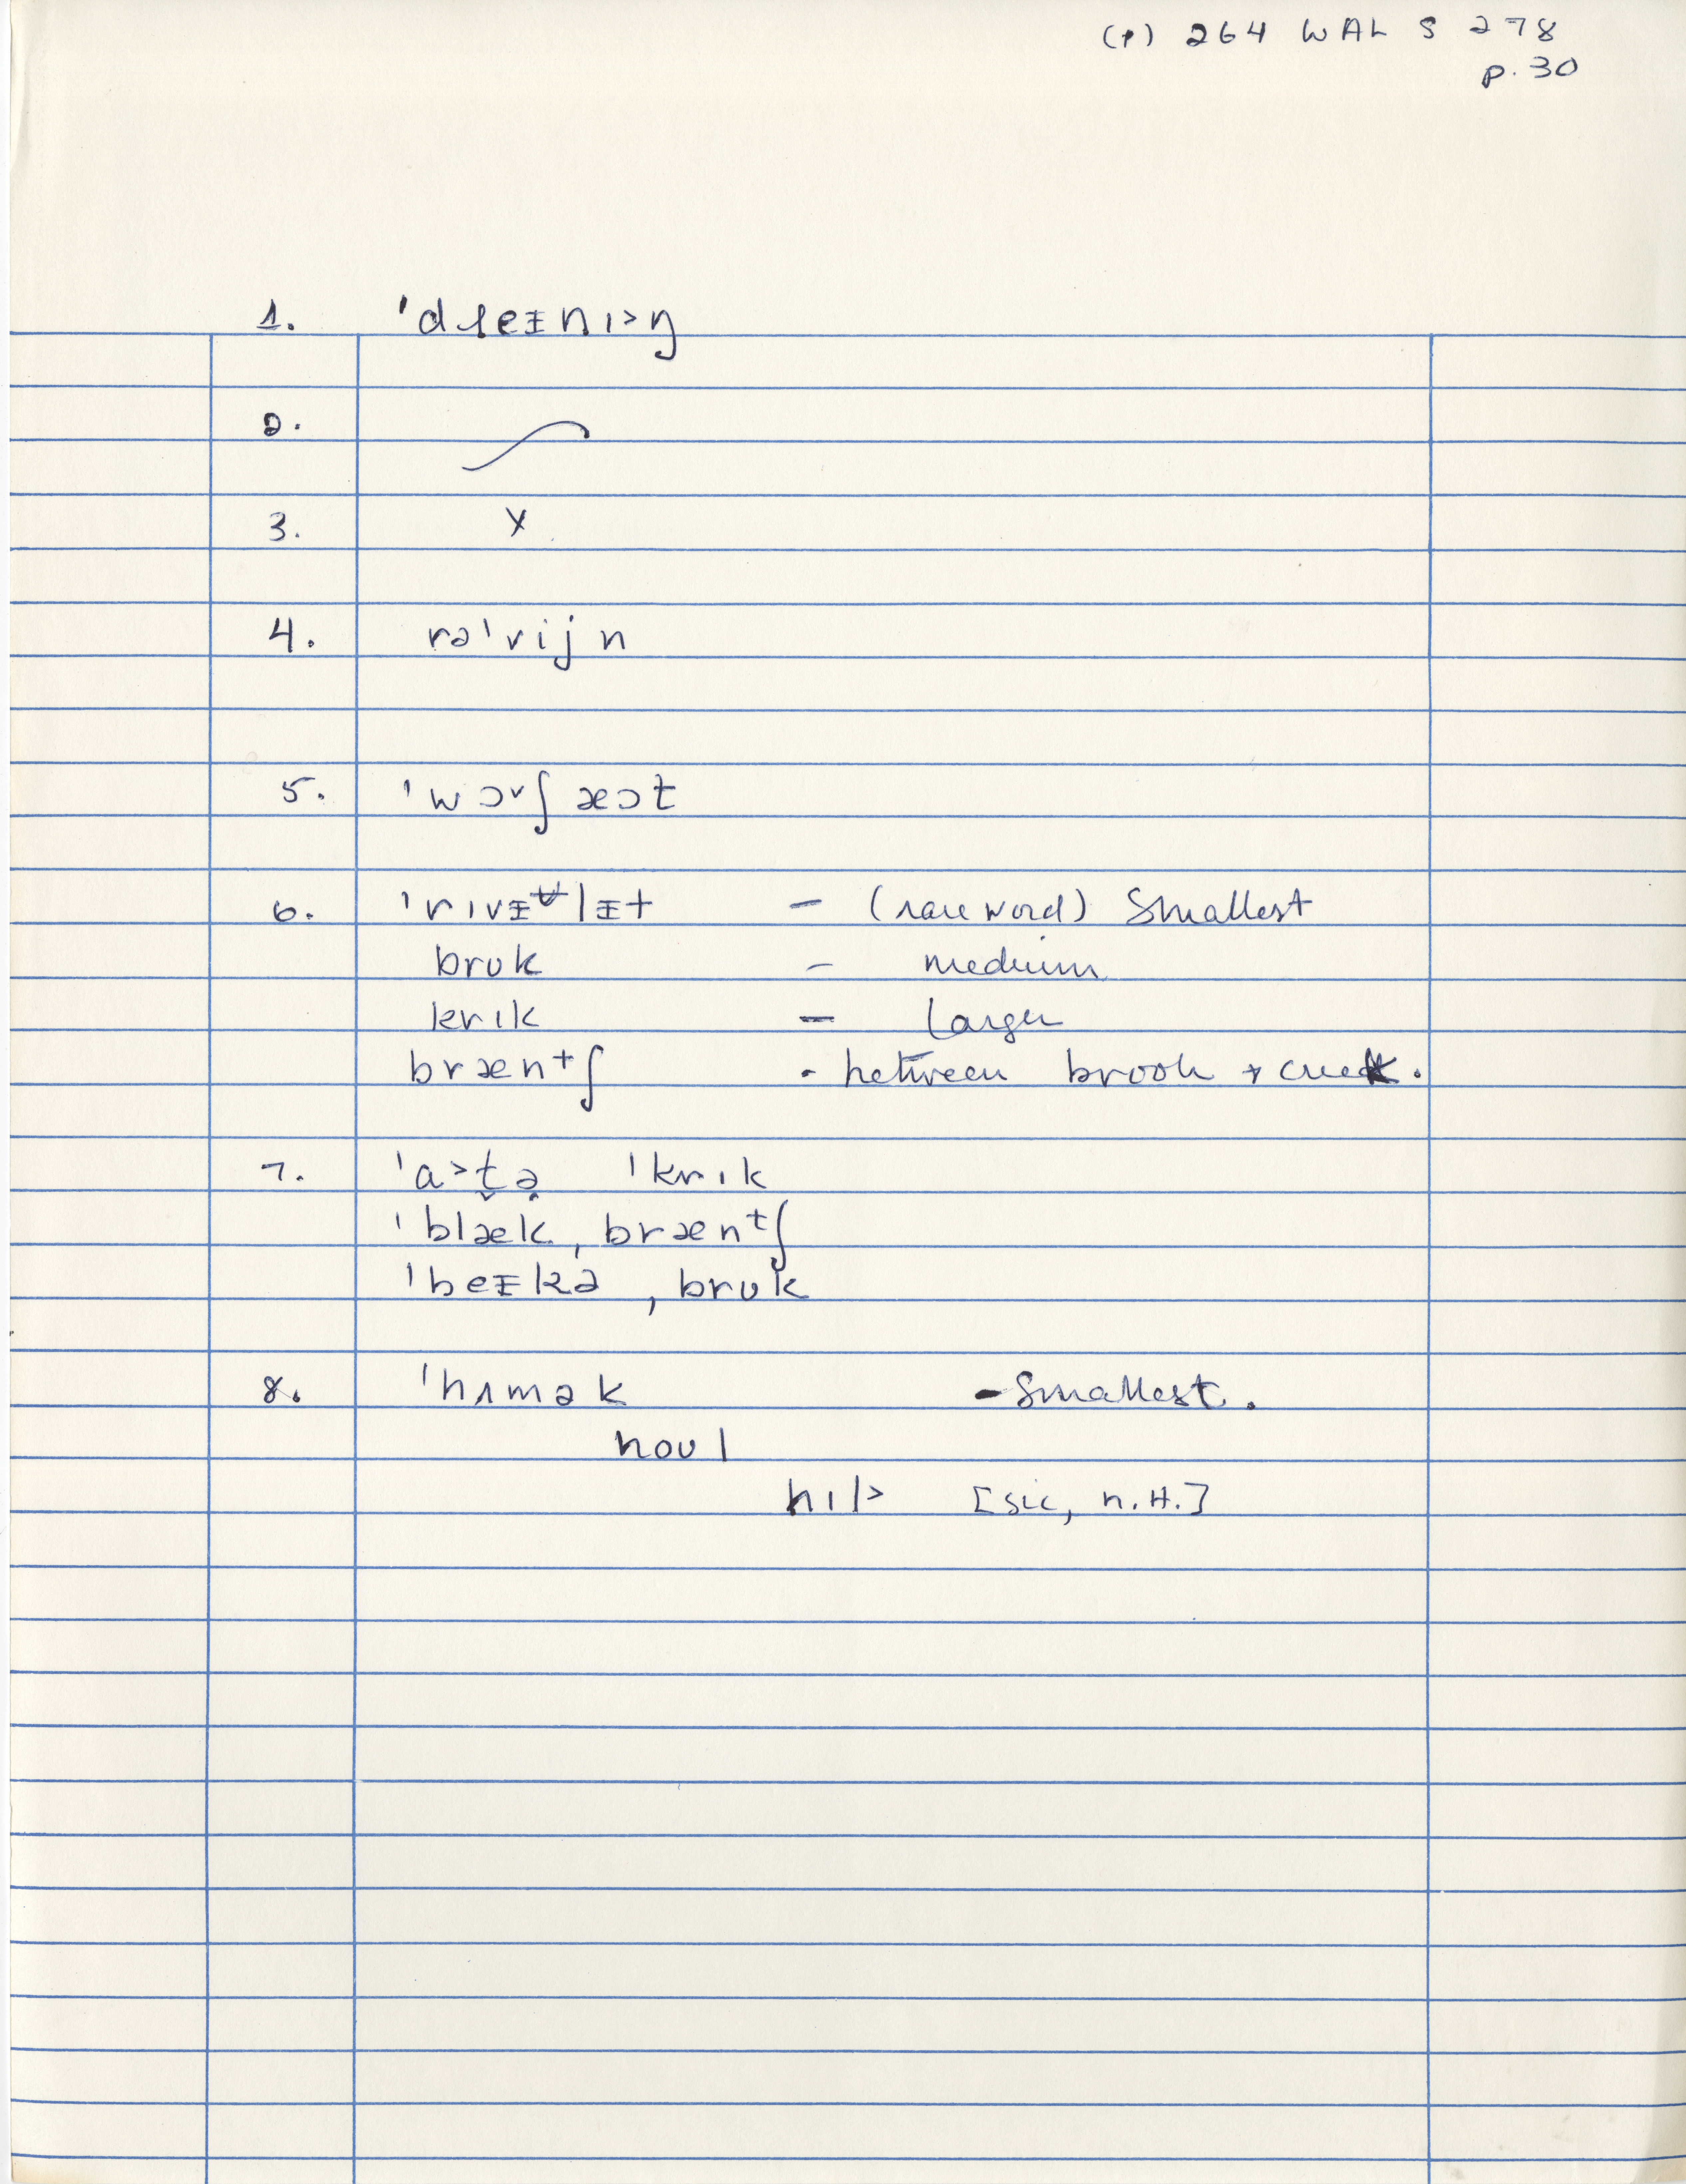 (P) 264 WAL S 278
p. 30
1. ˈdɹeᵻnɪ>ŋ
2.
3. X
4. rəˈvijn
5. ˈwɔˠʃæɔt
6. ˈrɪvᵻᶷlᵻt – (rare word) Smallest
brʊk – medium
krɪk – Larger
bræntʃ - between brook + creek.
7. ˈɑ>t̬ə̣ ˈkrɪk
ˈblæk ˌbræntʃ
ˈbeᵻkə ˌbrʊk
8. ˈhʌmək - Smallest.
noʊl
hɪl> [sic, N.H.]